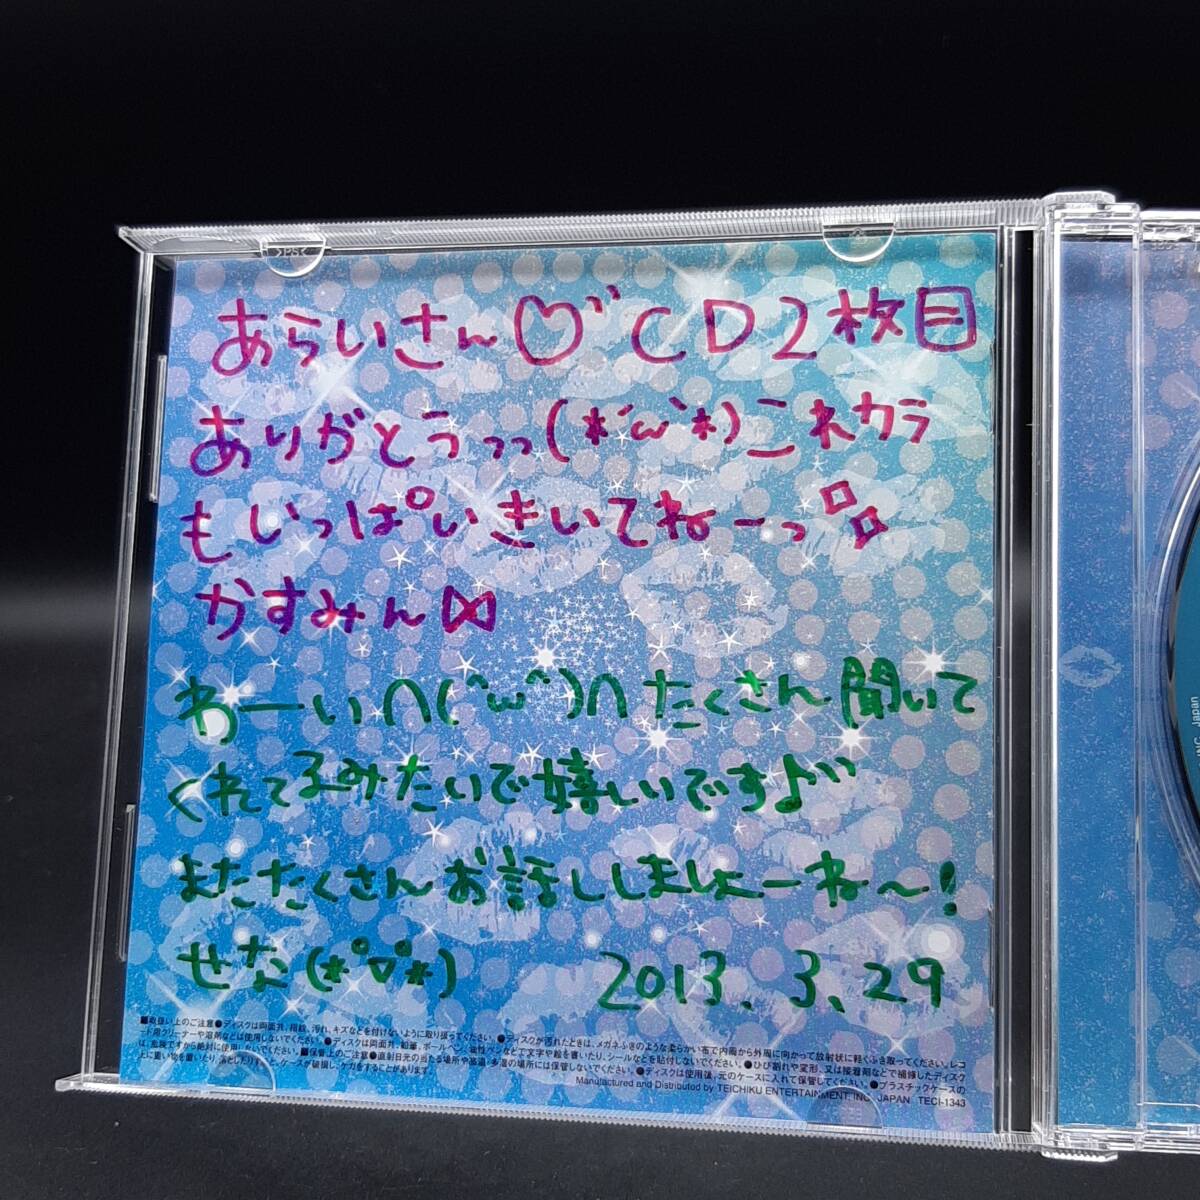 あらいさん♡゛CD2枚目
ありがとうっっ(*´ω`*)これカラ
もいっぱいきいてねーっ
かすみん⋈
わーい∩(^ω^)∩たくさん聞いて
くれてるみたいで嬉しいです♪
またたくさんお話ししましょーね〜!
せな(*°▽°*) 2013.3.29
■取扱い上のご注意●ディスクは両面共、指紋、汚れ、キズなどを付けないように取り扱ってください。●ディスクが汚れたときは、メガネふきのような柔らかい布で内周から外周に向かって放射状に軽くふき取ってください。レコ
ード用クリーナーや溶剤などは使用しないでください。●ディスクは両面共、鉛筆、ボールペン、油性ペンなどで文字や絵を書いたり、シールなどを貼付しないでください。●ひび割れや変形、又は接着剤などで補修したディスク
は、危険ですから絶対に使用しないでください。■保管上のご注意●直射日光の当たる場所や高温・多湿の場所には保管しないでください。●ディスクは使用後、元のケースに入れて保管してください。●プラスチックケースの
上に重い物を置いたり、落としたりすると、ケースが破損し、ケガをすることがあります。
Manufactured and Distributed by TEICHIKU ENTERTAINMENT, INC. JAPAN TECI-1343
Japan